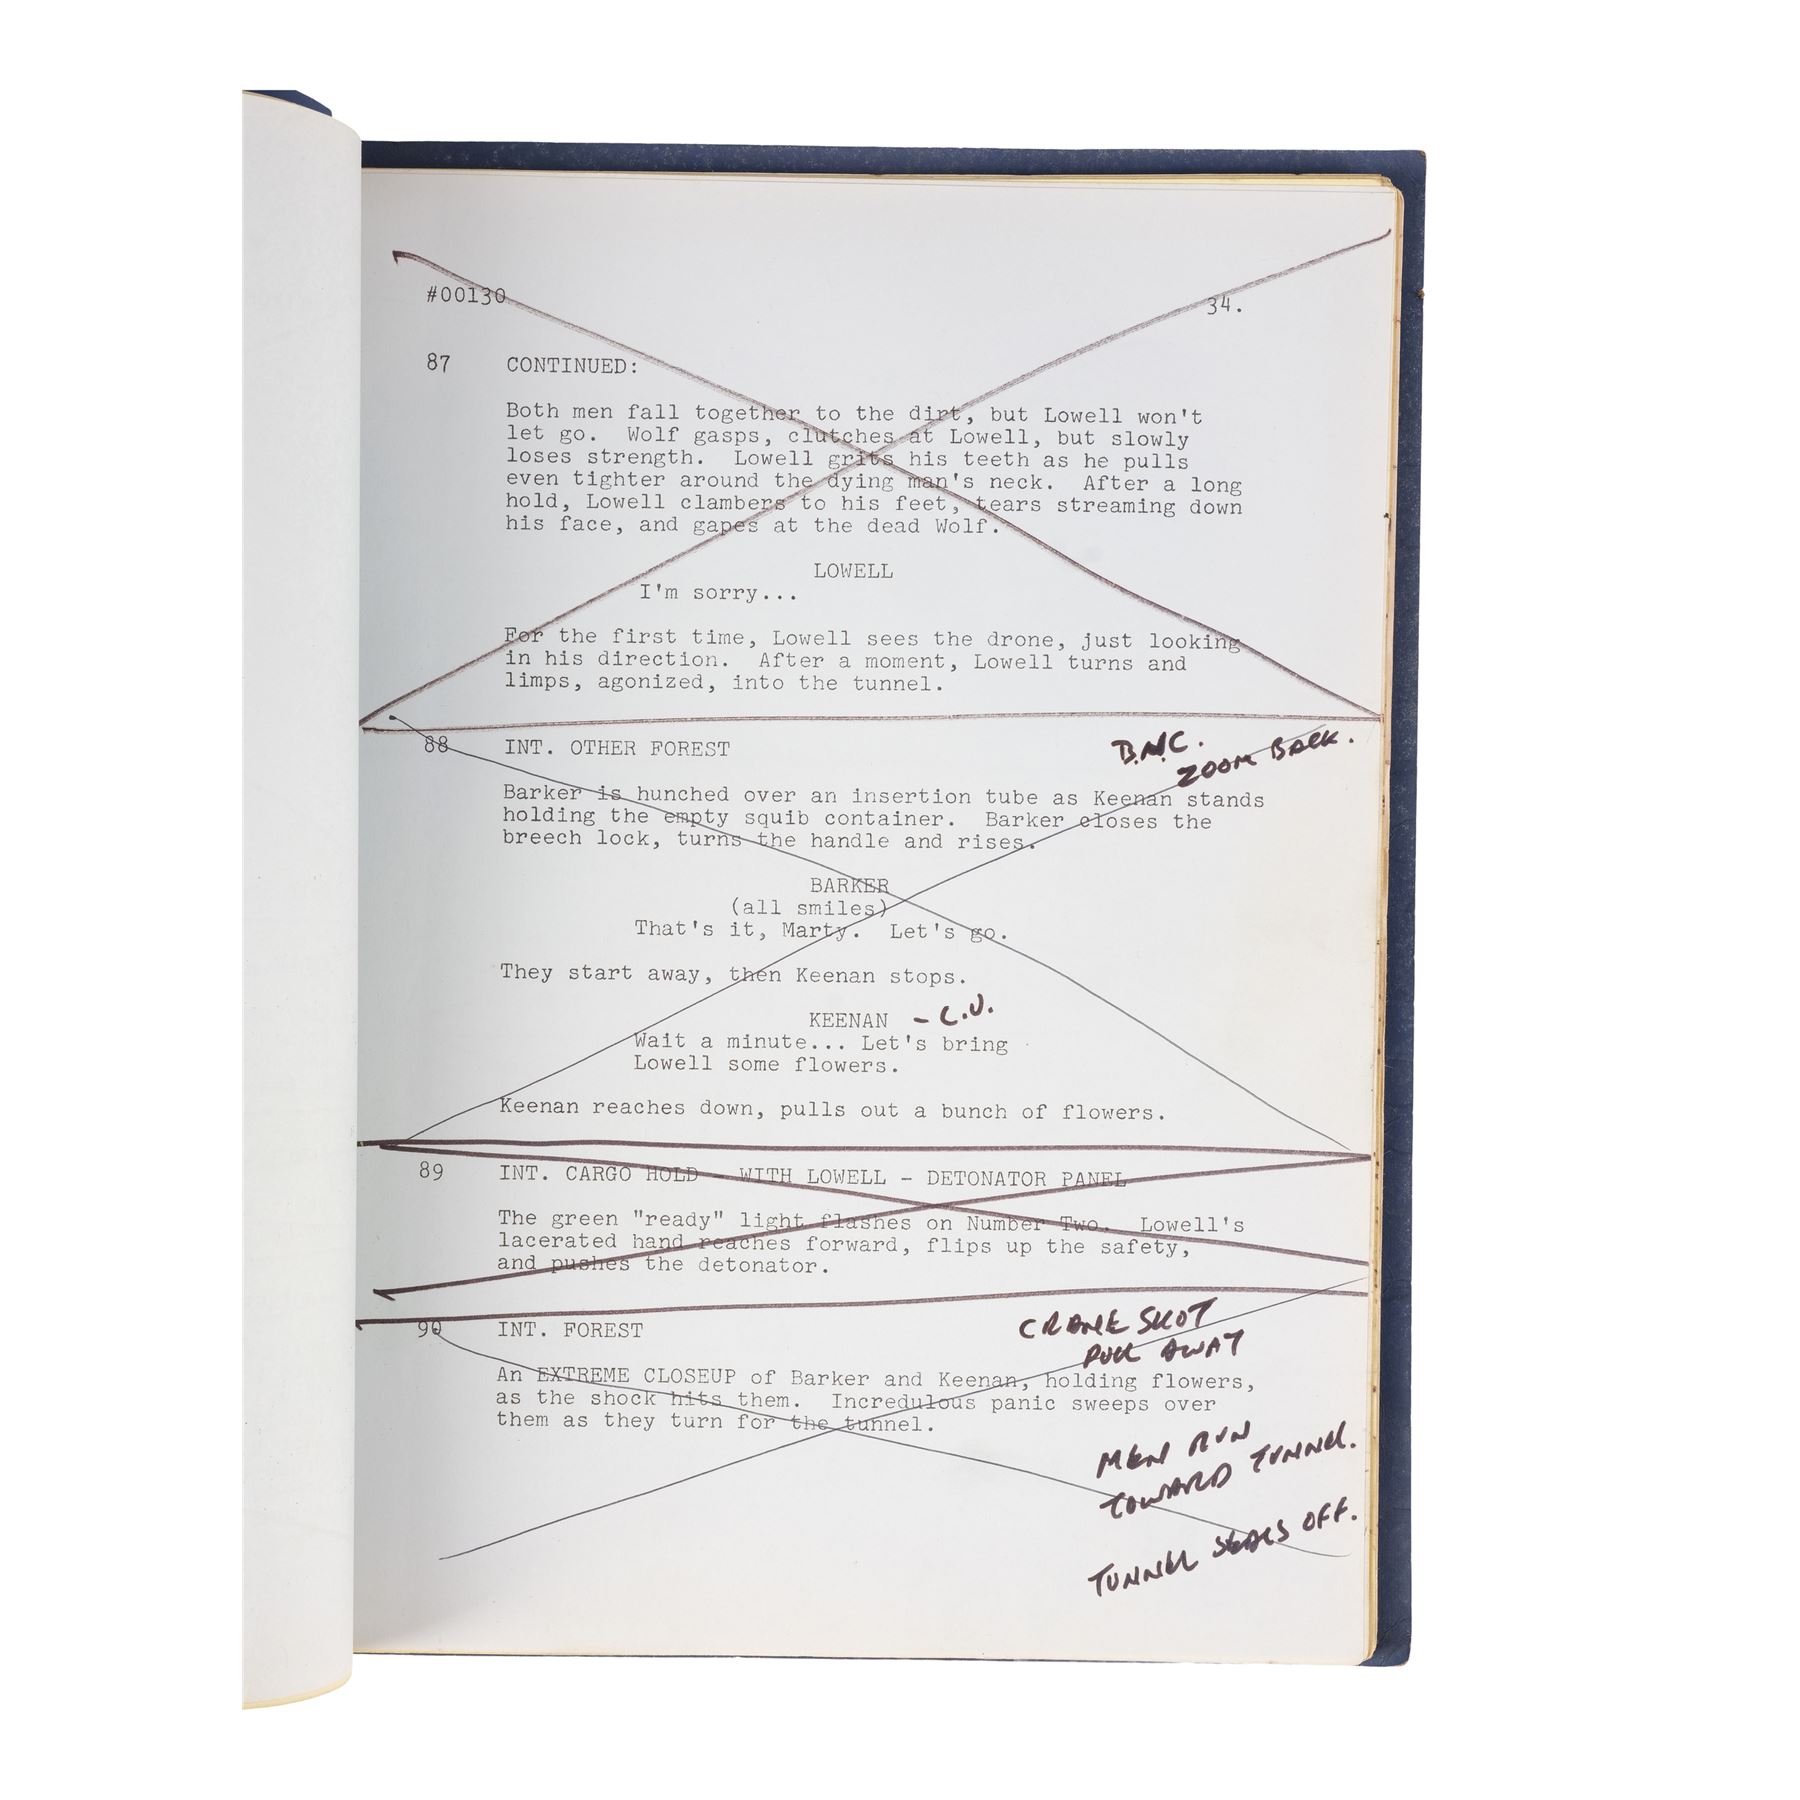 #00130 34.
87 CONTINUED:
Both men fall together to the dirt, but Lowell won't
let go. Wolf gasps, clutches at Lowell, but slowly
loses strength. Lowell grits his teeth as he pulls
even tighter around the dying man's neck. After a long
hold, Lowell clambers to his feet, tears streaming down
his face, and gapes at the dead Wolf.
LOWELL
I'm sorry...
For the first time, Lowell sees the drone, just looking
in his direction. After a moment, Lowell turns and
limps, agonized, into the tunnel.
88 INT. OTHER FOREST
B.N.C.
ZOOM BACK.
Barker is hunched over an insertion tube as Keenan stands
holding the empty squib container. Barker closes the
breech lock, turns the handle and rises.
BARKER
(all smiles)
That's it, Marty. Let's go.
They start away, then Keenan stops.
KEENAN - C.U.
Wait a minute... Let's bring
Lowell some flowers.
Keenan reaches down, pulls out a bunch of flowers.
89 INT. CARGO HOLD - WITH LOWELL - DETONATOR PANEL
The green "ready" light flashes on Number Two. Lowell's
lacerated hand reaches forward, flips up the safety,
and pushes the detonator.
90 INT. FOREST
CRANE SHOT
PULL AWAY
An EXTREME CLOSEUP of Barker and Keenan, holding flowers,
as the shock hits them. Incredulous panic sweeps over
them as they turn for the tunnel.
MEN RUN
TOWARD TUNNEL.
TUNNEL SEALS OFF.